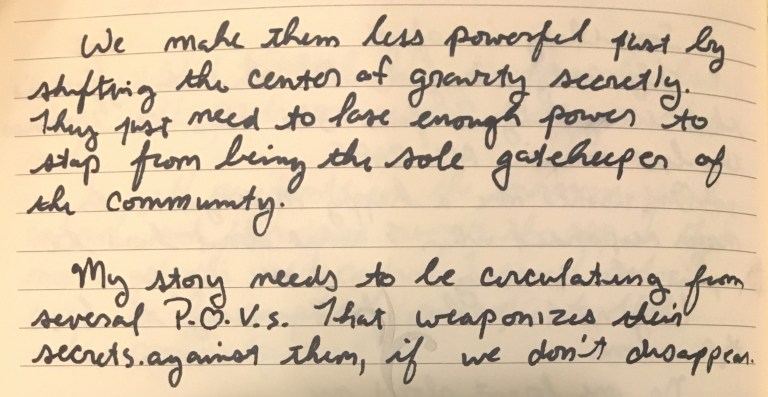 We make them less powerful just by
shifting the center of gravity secretly.
They just need to lose enough power to
stop from being the sole gatekeeper of
the community.
My story needs to be circulating from
several P.O.V.s. That weaponizes their
secrets.against them, if we don't disappear.